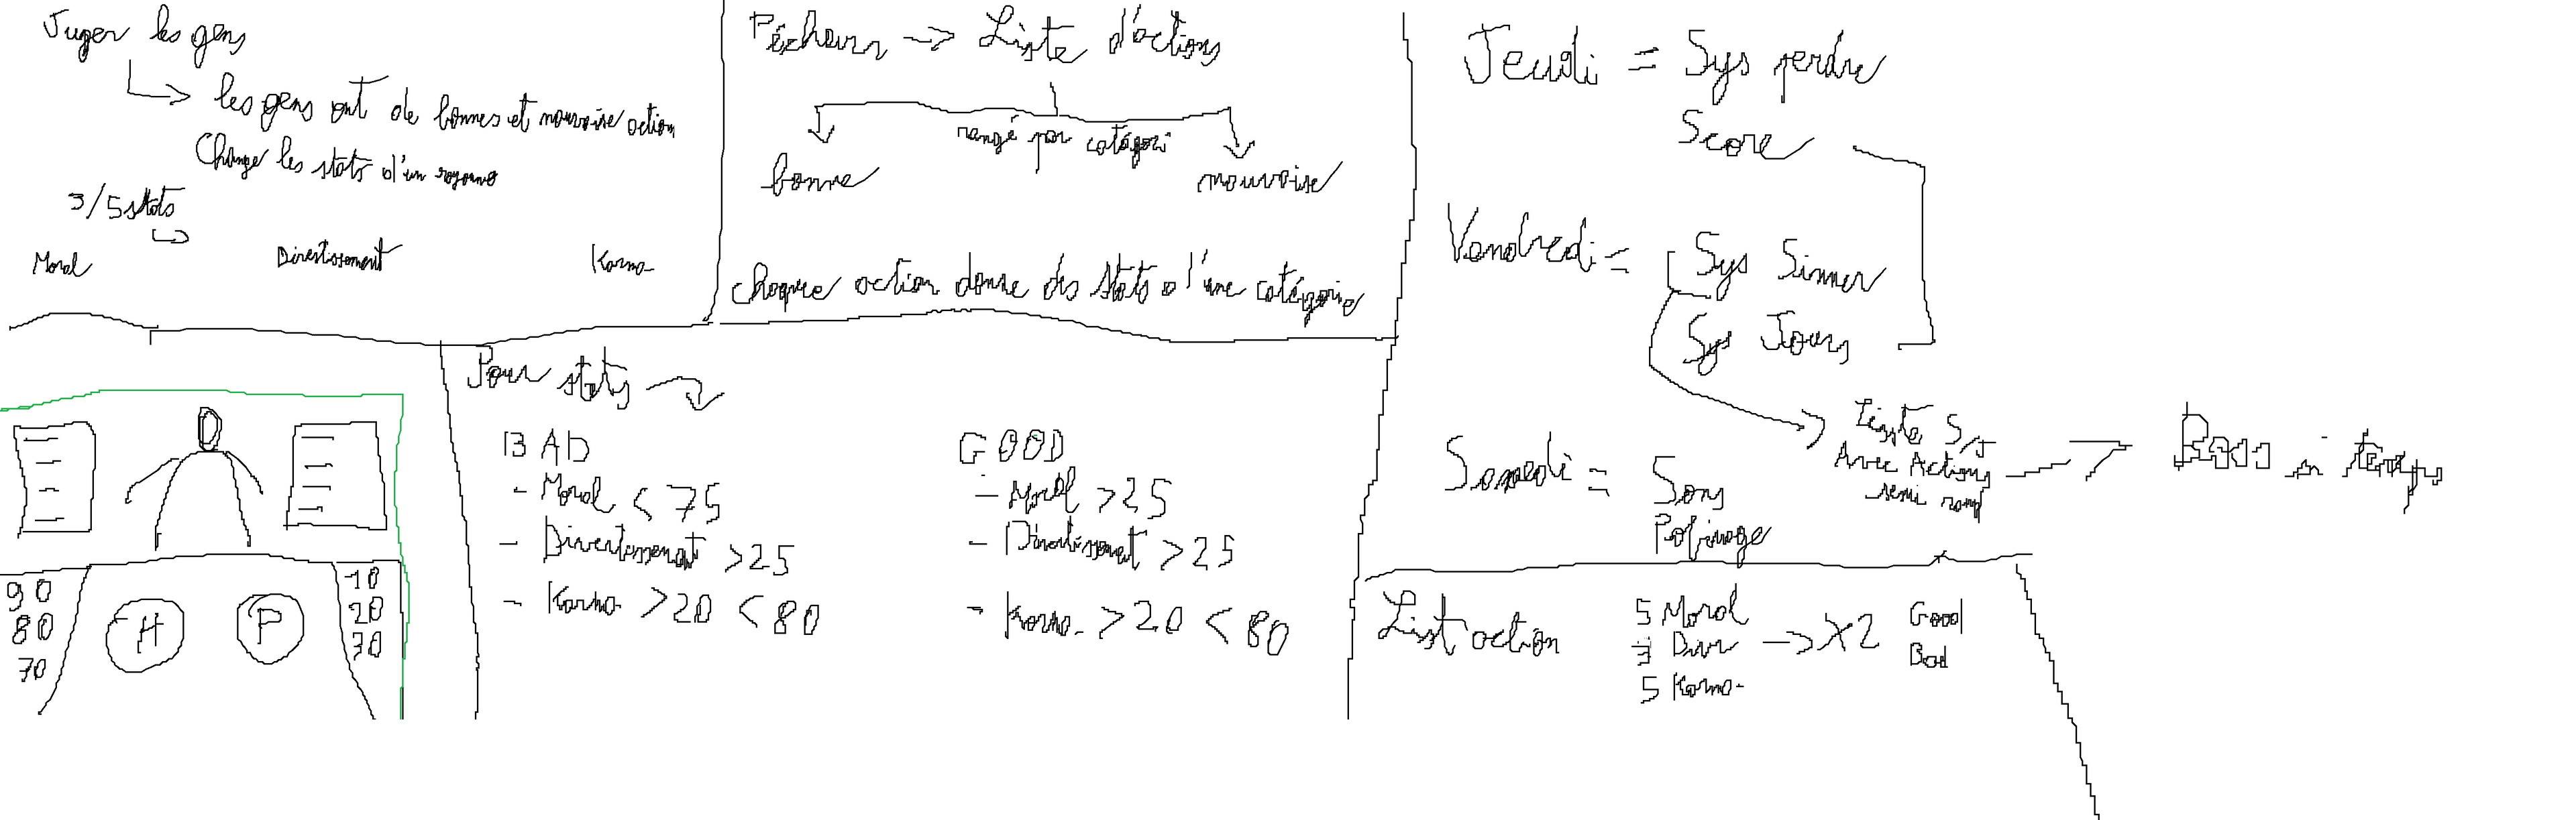 Juger les gens
les gens ont de bonnes et mauvaise action
Change les stats d'un royaume
3/5 stats
Moral
Divertissement
Karma
Pécheurs -> Liste d'actions
rangé par catégori
bonne
mauvaise
chaque action donne des stats d'une catégorie
Pour stats
BAD
- Moral < 75
- Divertissement > 25
- Karma > 20 < 80
GOOD
- Moral > 25
- Divertissment > 25
- Karma > 20 < 80
90
80
70
H
P
-10
20
30
Jeudi = Sys perdre
Score
Vendredi = Sys Sinner
Sys Jours
Liste S/J
Avec Actions
semi
Samedi = Sons
Polissage
List action
5 Moral
Divr -> X2
5 Karma
Good
Bad